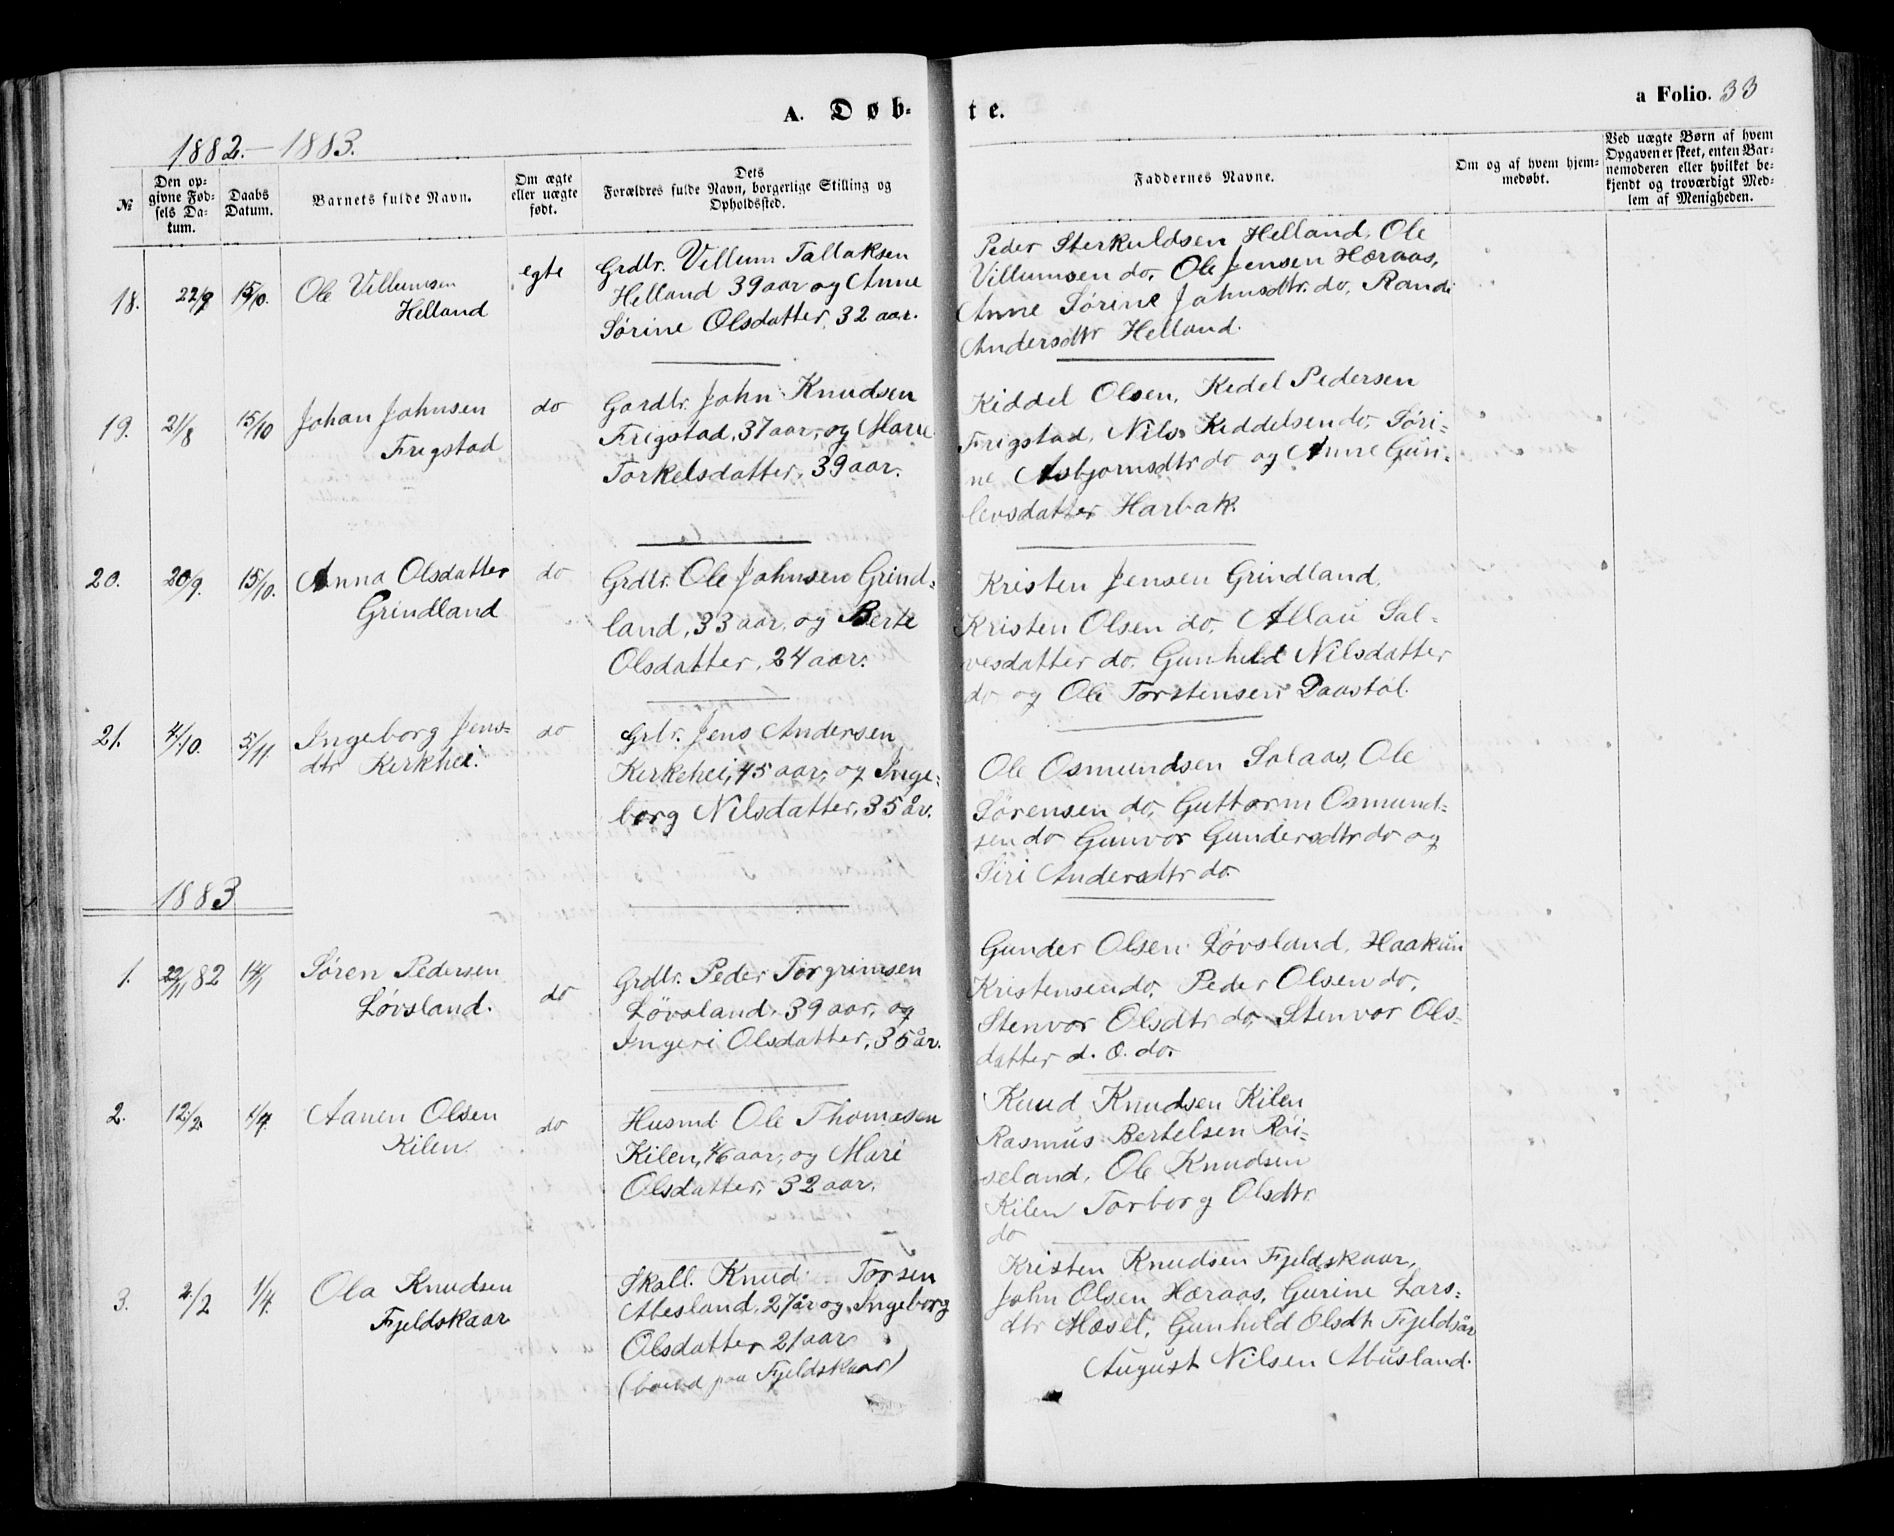 a Folio. 33
A. Døb-
te.
1882.-1883.
№
Den op-
givne Fød-
sels Da-
tum.
Daabs
Datum.
Barnets fulde Navn.
Om ægte
eller uægte
født.
Dets
Forældres fulde Navn, borgerlige Stilling og
Opholdssted.
Faddernes Navne.
Om og af hvem hjem-
medøbt.
Ved uægte Børn af hvem
Opgaven er skeet, enten Bar-
nemoderen eller hvilket be-
kjendt og troværdigt Med-
lem af Menigheden.
18.
22/9
15/10.
Ole Villumsen
Helland
egte
Grdbr. Villum Tallaksen
Helland 39 aar og Anne
Sørine Olsdatter, 32 aar.
Peder Sterkuldsen Helland, Ole
Villumsen do, Ole Jensen Hæraas,
Anne Sørine Johnsdtr. do, Randi
Andersdtr Helland.
19.
21/8
15/10
Johan Johnsen
Frigstad
do
Gardbr. John Knudsen
Frigstad, 37 aar, og Marie
Torkelsdatter, 39 aar.
Kiddel Olsen, Kedel Pedersen
Frigstad, Nils Kiddelsen do, Søri-
ne Asbjornsdtr do og Anne Gun-
levsdatter Harbak.
20.
20/9.
15/10.
Anna Olsdatter
Grindland
do
Grdbr. Ole Johnsen Grind-
land, 33 aar, og Berte
Olsdatter, 24 aar.
Kristen Jensen Grindland,
Kristen Olsen do, Allau Sal-
vesdatter do. Gunhild Nilsdatter
do og Ole Torstensen Daastøl.
21.
4/10.
5/11.
Ingeborg Jens-
dtr Kirkhei.
do
Grbr. Jens Andersen
Kirkehei, 45 aar, og Inge-
borg Nilsdatter, 35 år.
Ole Osmundsen Solaas, Ole
Sørensen do, Guttorm Osmund-
sen do Gunvor Gundersdtr do og
Siri Andersdtr do.
1883
1.
22/11 82
14/1
Søren Pedersen
Løvsland.
do
Grdbr. Peder Torgrimsen
Løvsland, 39 aar, og
Ingeri Olsdatter, 35 år.
Gunder Olsen Løvsland, Haakun
Kristensen do, Peder Olsen do,
Stenvor Olsdtr do, Stenvor Ols-
datter d. e. do.
2.
12/2
1/4.
Aanen Olsen
Kilen
do
Husmd. Ole Thomesen
Kilen, 46 aar, og Mari
Olsdatter, 32 aar.
Knud Knudsen Kilen
Rasmus Bertelsen Røi-
seland, Ole Knudsen
Kilen Torborg Olsdtr.
do
3.
2/2
1/4.
Ola Knudsen
Fjeldskaar
Skoll. Knud Torsen
Abesland, 27 år og Ingeborg
Olsdatter 21 aar
(boend paa Fjeldskaar)
Kristen Knudsen Fjeldskaar,
John Olsen Hæraas, Gurine Lars-
dtr Mæsel, Gunhild Olsdtr Fjeldsår
August Nilsen Abusland.